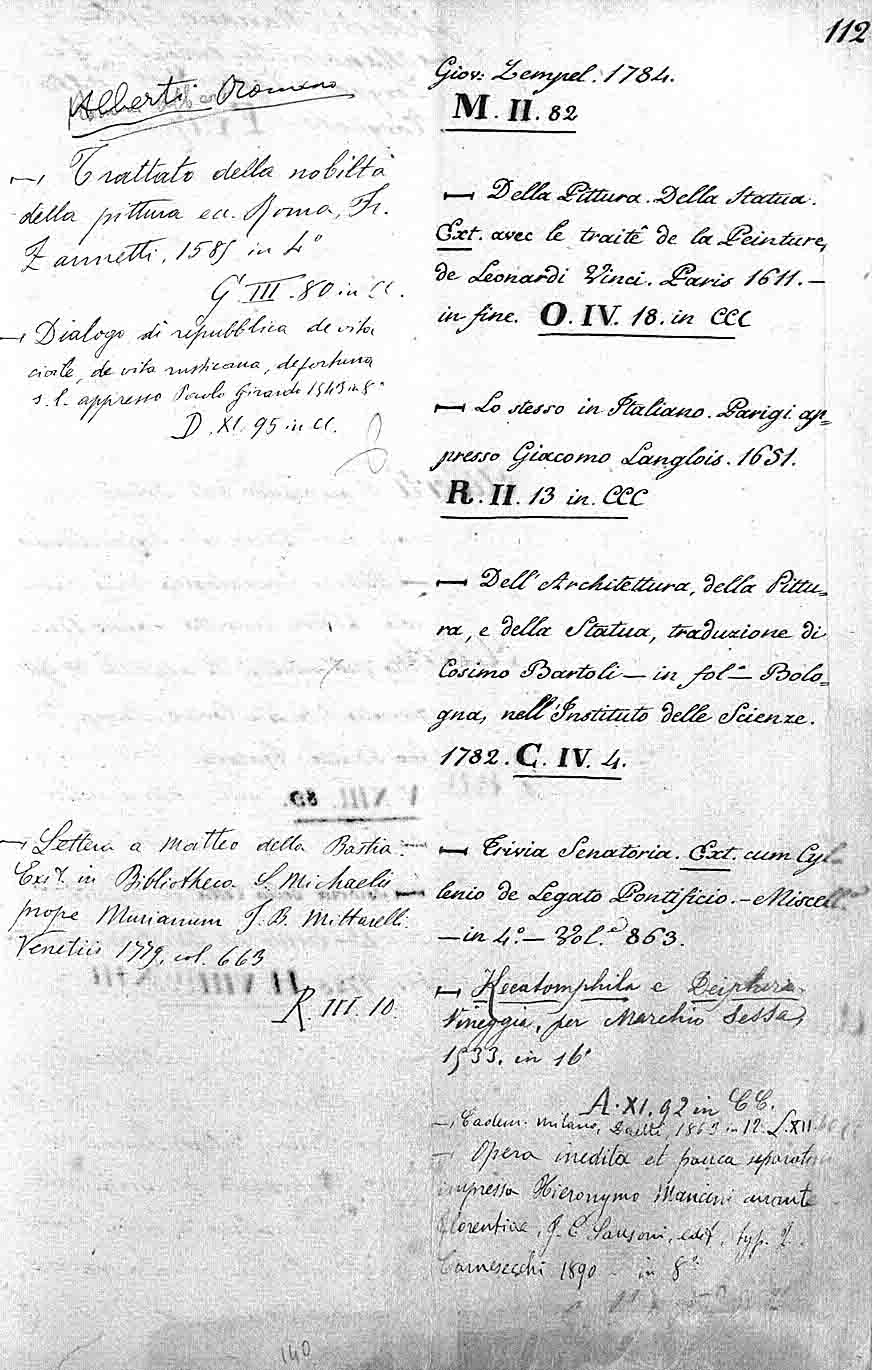 112
Alberti Romano
— Trattato della nobiltà
della pittura ec. Roma, Fr.
Zannetti, 1585 in 4°
G III. 80 in CC.
— Dialogo di repubblica de vita
civile, de vita rusticana, de fortuna
s. l. appresso Paolo Girardo 1543 in 8°
D. XI. 95 in CC.
— Lettera a Matteo della Bastia.
Exit. in Bibliotheca S. Michaelis
prope Murianum J. B. Mittarelli.
Venetiis 1779, col. 663
R. III. 10.
Giov: Zempel. 1784.
M. II. 82
— Della Pittura. Della Statua.
Ext. avec le traité de la Peinture,
de Leonardi Vinci. Paris 1611. —
in fine. O. IV. 18. in CCC
— Lo stesso in Italiano. Parigi ap=
presso Giacomo Langlois. 1651.
R. II. 13 in. CCC
— Dell'Architettura, della Pittu=
ra, e della Statua, traduzione di
Cosimo Bartoli — in fol° — Bolo=
gna, nell'Instituto delle Scienze.
1782. C. IV. 4.
— Trivia Senatoria. Ext. cum Cyl
lenio de Legato Pontificio. — Miscell.ª
— in 4°. — Vol.° 863.
— Hecatomphila e Deiphira
Vineggia, per Marchio Sessa,
1533. in 16°
A. XI. 92 in CC.
— Eadem. Milano, Daelli, 1863 in 12. L. XII.
— Opera inedita et pauca separatim
impressa Hieronymo Mancini curante
Florentiae, J. C. Sansoni, edit, typ.
Carnesecchi 1890 — in 8°
140